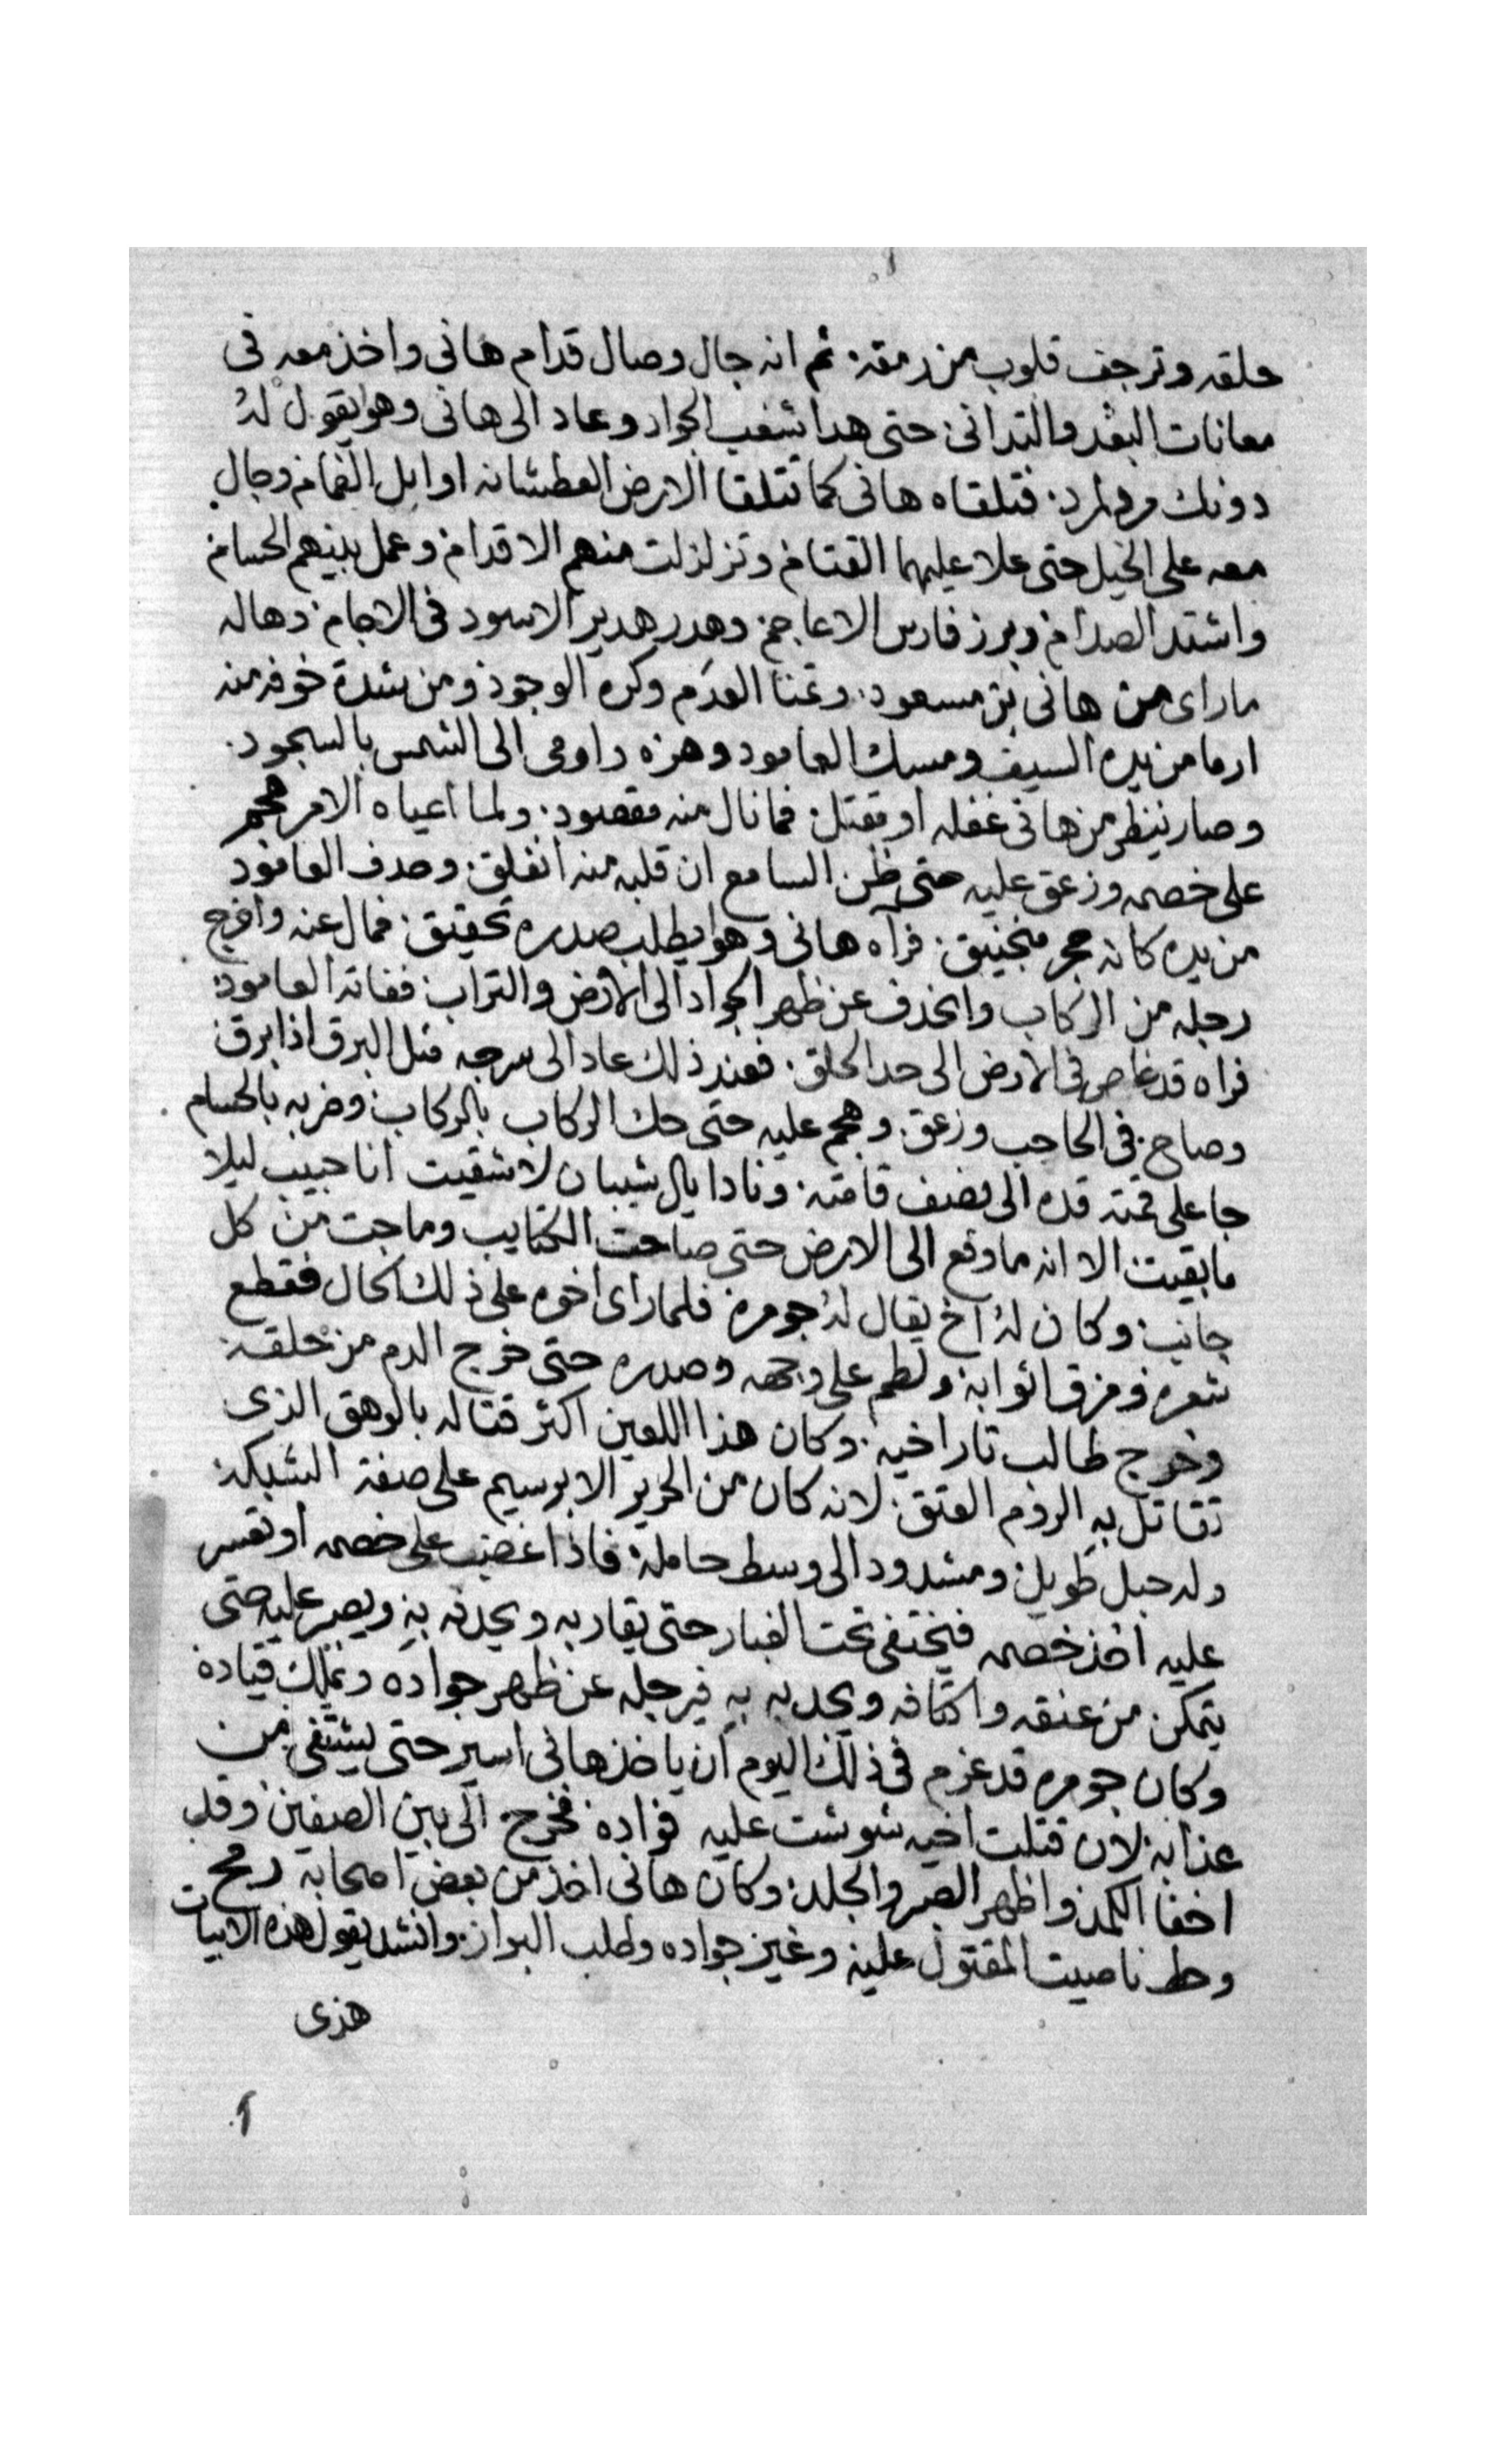 حلقه وترجف قلوب من رمقه. ثم انه جال وصال قدام هانى واخذ معه فى
معانات البعد والتدانى. حتى هدا شغب الجواد وعاد الى هانى وهو يقول له
دونك مرد مرد. فتلقاه هانى كما تتلقا الارض العطشانه اوايل الغمام وجال
معه على الخيل حتى علا عليهما القتام وتزلزلت منهم الاقدام وعمل بينهم الحسام
واشتد الصدام وبرز فارس الاعاجم وهدر هدير الاسود فى الاجام. وهاله
ما راى من هانى بن مسعود. وتمنا العدم وكره الوجود ومن شدة خوفه منه
ارما من يده السيف ومسك العامود وهزه واومى الى الشمس بالسجود.
وصار ينظر من هانى غفله او مقتل فما نال منه مقصود. ولما اعياه الامر هجم
على خصمه وزعق عليه حتى ظن السامع ان قلبه منه انفلق. وحدف العامود
من يده كانه حجر منجنيق. فراه هانى وهو يطلب صدره تحقيق. فمال عنه واخرج
رجله من الركاب وانحدف عن ظهر الجواد الى الارض والتراب ففاته العامود
فراه قد غاص فى الارض الى حد الحلق. فعند ذلك عاد الى سرجه مثل البرق اذا برق
وصاح فى الحاجب وزعق. وهجم عليه حتى حك الركاب بالركاب وضربه بالحسام
جا على قمته قده الى نصف قامته. ونادا يال شيبان لا شقيت انا حبيب ليلا
ما بقيت الا انه ما وقع الى الارض حتى صاحت الكتايب وماجت من كل
جانب وكان له اخ يقال له جومره فلما راى اخوه على ذلك الحال فقطع
شعره ومزق اثوابه ولطم على وجهه وصدره حتى خرج الدم من حلقه
وخرج طالب تار اخيه. وكان هذا اللعين اكثر قتاله بالوهق الذى
تقاتل به الروم العتق. لانه كان من الحرير الابرسيم على صفة الشبكة
وله حبل طويل ومشدود الى وسط حامله. فاذا غضب على خصمه او تعسر
عليه اخذ خصمه فيختفى تحت الغبار حتى يقاربه ويحدفه به ويصر عليه حتى
يتمكن من عنقه واكتافه ويجدبه به فيرجله عن ظهر جواده ويملك قياده
وكان جومره قد عزم فى ذلك اليوم ان ياخذ هانى اسير حتى يشتفى من
عذابه. لان قتلت اخيه شوشت عليه فواده فخرج الى بين الصفين وقد
اخفا الكمد واظهر الصبر والجلد. وكان هانى اخذ من بعض اصحابه رمح
وحط ناصيت المقتول عليه وغيز جواده وطلب البراز. وانشد يقول هذه الابيات
هذى